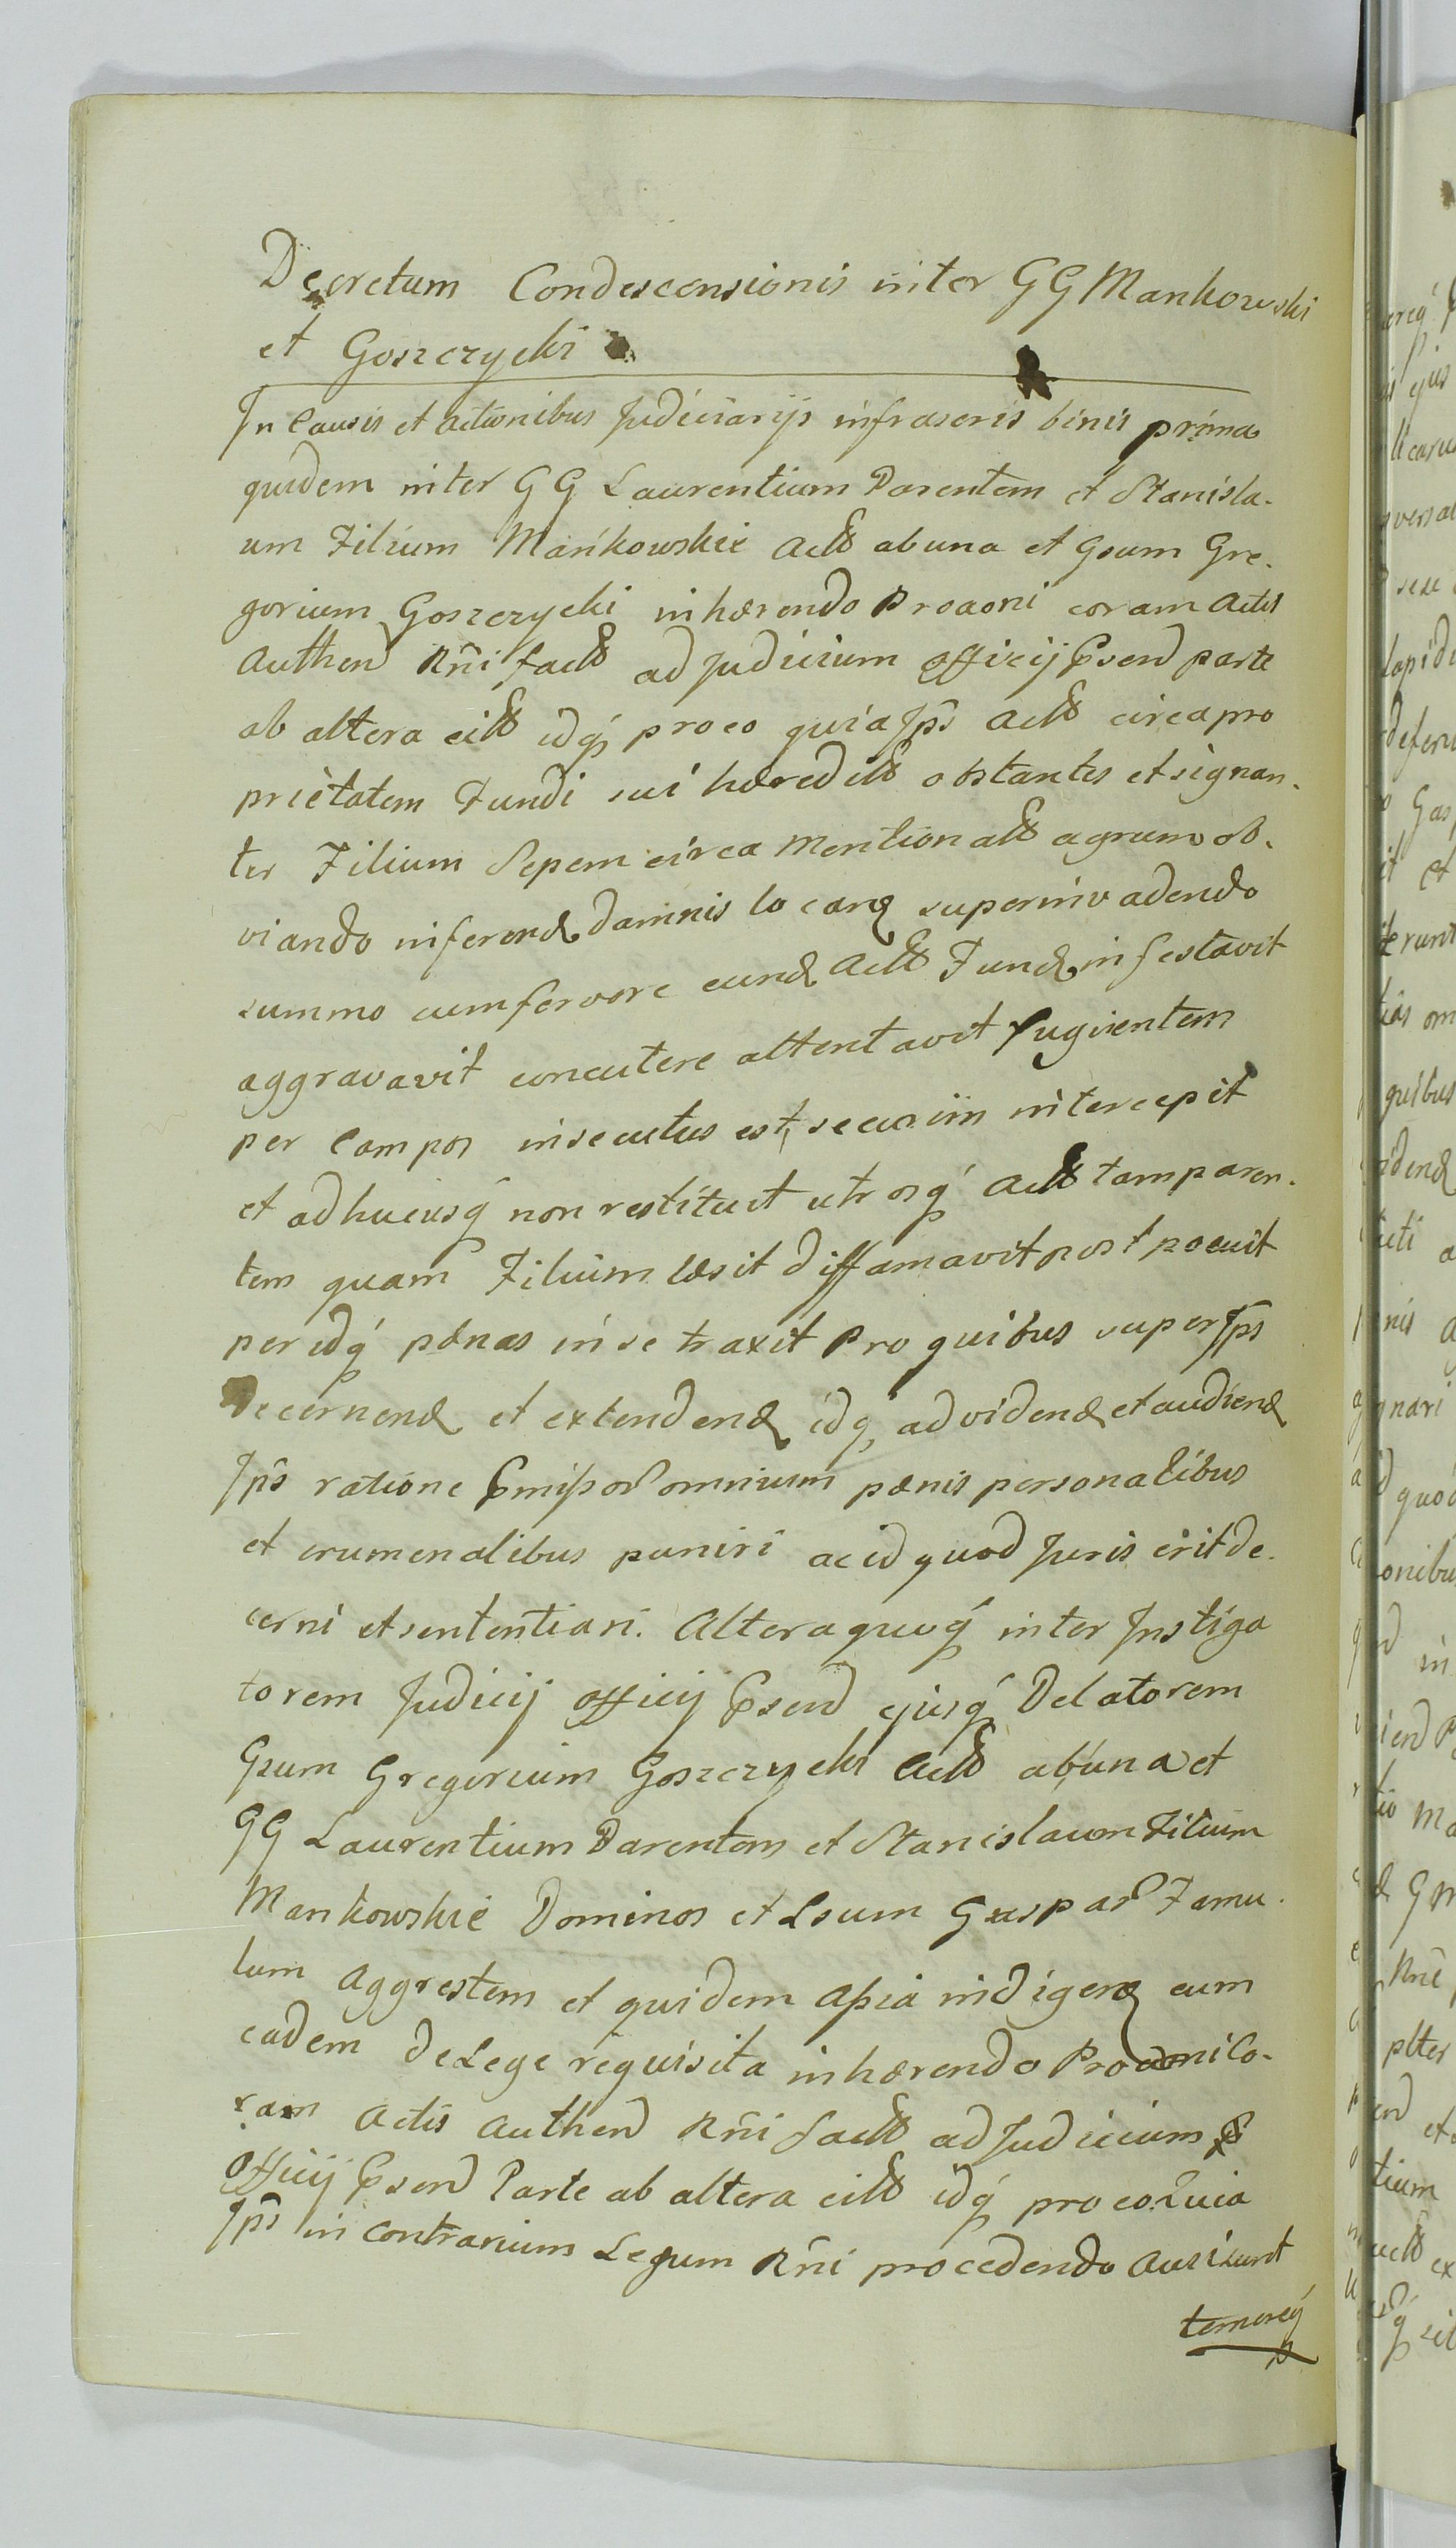 Decretum Condescensionis inter GG Mankowski
et Goszczycki
In Causis et actionibus Judiciarijs infrascris binis prima
quidem inter GG Laurentium Parentem et Stanisla-
um Filium Mańkowskie actt ab una et Gsum Gre-
gorium Goszczycki inhærendo Proaoni coram Actis
Authen Rñi factt ad Judicium officij Psend parte
ab altera citt idq́ pro eo quia Ip̃s actt circa pro
prietatem Fundi sui hæreditt obstantes et signan-
ter Filium Sepem circa mentionatt agrum ob-
viando inferend damnis locand superinvadendo
summo cum fervore eund actt Fund infestavit
aggravavit concutere attentavit fugientem
per Campos insecutus est, securim intercepit
et adhucusq́ non restituit utrosq́ actt tam paren-
tem quam Filium læsit diffamavit post pocuit
per idq́ pænas in se traxit Pro quibus super Ip̃s
decernend et extendend idq, ad vidend et audiend
Ip̃s ratione Pmissor omnium pænis personalibus
et crumenalibus puniri ac id quod Juris erit de-
cerni et sententiari. Altera quoq́ inter Instiga
torem Judicij officij Psend ejusq́ Delatorem
Gsum Gregorium Goszczycki actt ab una et
GG Laurentium Parentem et Stanislaum Filium
Mankowskie Dominos et Lsum Gaspar Famu-
lum Aggrestem et quidem aſsia indigend cum
eadem de Lege requisita inhærendo Proaoni Co-
ram Actis Authen Rñi factt ad Judicium
Officij Psend Parte ab altera citt idq́ pro eo Quia
Ip̃s in contrarium Legum Rñi procedendo ausi sunt
temereq́